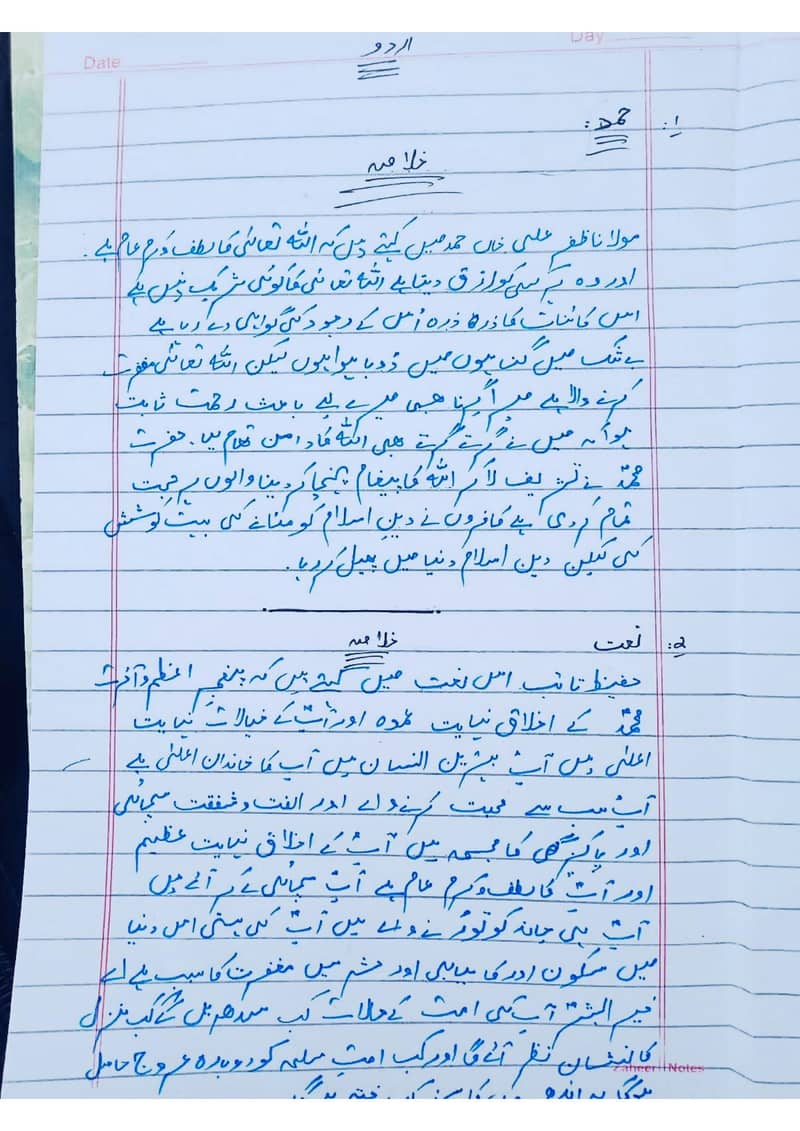 Date
Day
اردو
1: حمد:
خلاصہ
مولانا ظفر علی خاں حمد میں کہتے ہیں کہ اللہ تعالیٰ کا لطف و کرم عام ہے۔
اور وہ ہر کسی کو رزق دیتا ہے اللہ تعالیٰ کا کوئی شریک نہیں ہے
اس کائنات کا ذرہ ذرہ اُس کے وجود کی گواہی دے رہا ہے
بے شک میں گناہوں میں ڈوبا ہوا ہوں لیکن اللہ تعالیٰ مغفرت
کرنے والا ہے میرا گرنا بھی میرے لیے باعث رحمت ثابت
ہوا کہ میں نے گرتے گرتے بھی اللہ کا دامن تھام لیا۔ حضرت
محمدؐ نے تشریف لا کر اللہ کا پیغام پہنچا کر دینا والوں پر حجت
تمام کر دی ہے کافروں نے دینِ اسلام کو مٹانے کی بہت کوشش
کی لیکن دین اسلام دنیا میں پھیل کر رہا۔
2: نعت خلاصہ
حفیظ تائب اس نعت میں کہتے ہیں کہ پیغمبرِ اعظم و آخرت
محمدؐ کے اخلاق نہایت عمدہ اور آپؐ کے خیالات نہایت
اعلیٰ ہیں آپؐ بہترین انسان ہیں آپ کا خاندان اعلیٰ ہے
آپؐ سب سے محبت کرنے والے اور الفت و شفقت سچائی
اور پاکیزگی کا مجسمہ ہیں آپؐ کے اخلاق نہایت عظیم
اور آپؐ کا لطف و کرم عام ہے آپؐ سچائی کے آئے ہیں
آپؐ کو توڑنے والے ہیں آپؐ کی ہستی اس دنیا
میں سکون اور کامیابی اور حشر میں مغفرت کا سبب ہے اے
خیر البشرؐ آپؐ کی امت کے حالات کب سدھریں گے کب منزل
کا نشان نظر آئے گا اور کب امتِ مسلمہ کو دوبارہ عروج حاصل
ہوگا یہ
Zaheer Notes